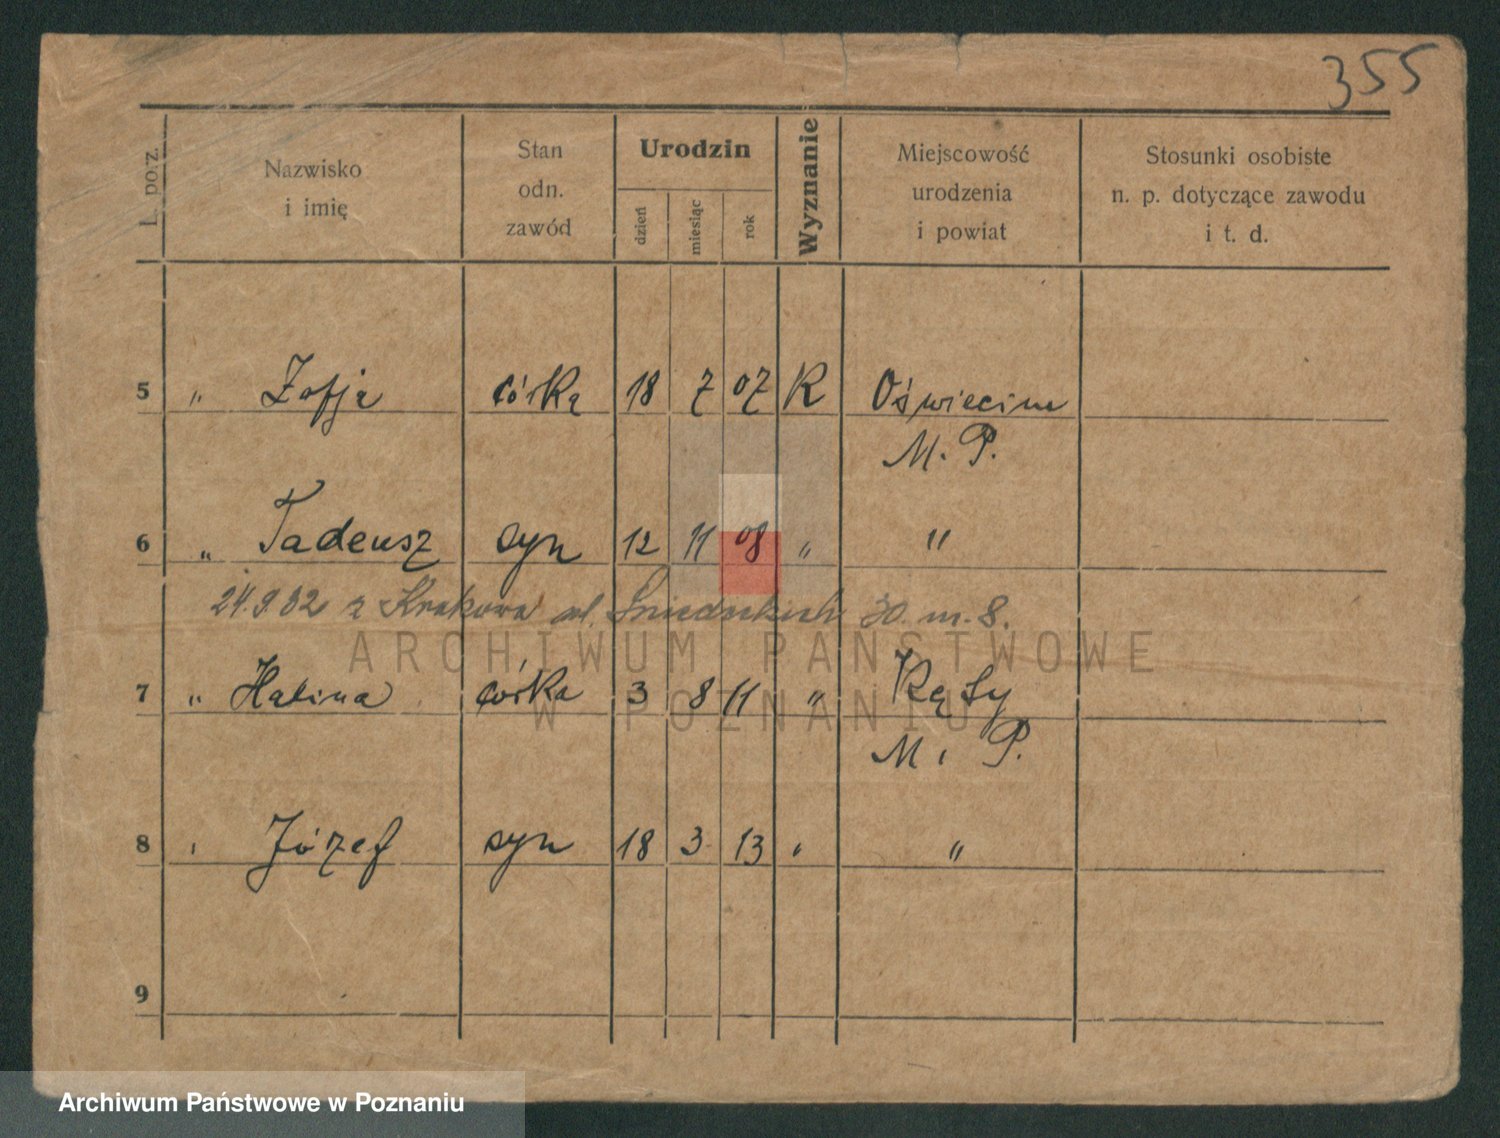 355
L. poz.
Nazwisko
i imię
Stan
odn.
zawód
Urodzin
dzień
miesiąc
rok
Wyznanie
Miejscowość
urodzenia
i powiat
Stosunki osobiste
n. p. dotyczące zawodu
i t. d.
5 „ Zofja córka 18 7 07 R Oświecim
M. P.
6 „ Tadeusz syn 12 11 08 „ "
24.9.32 z Krakowa ul. 30. m. 8.
ARCHIWUM PAŃSTWOWE
7 „ Halina córka 3 8 11 „ Kęty
W POZNANIU
M. P.
8 „ Józef syn 18 3 13 „ "
9
Archiwum Państwowe w Poznaniu